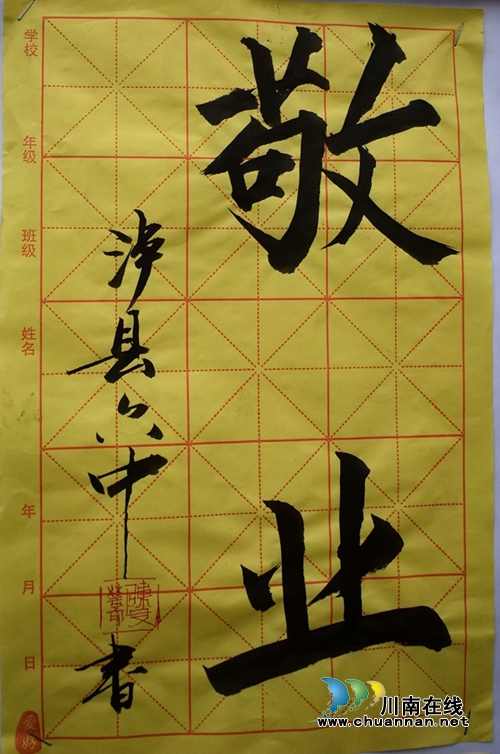 敬业
泸县六中
书
学校
年级
班级
姓名
年 月 日
川南在线
www.chuannan.net